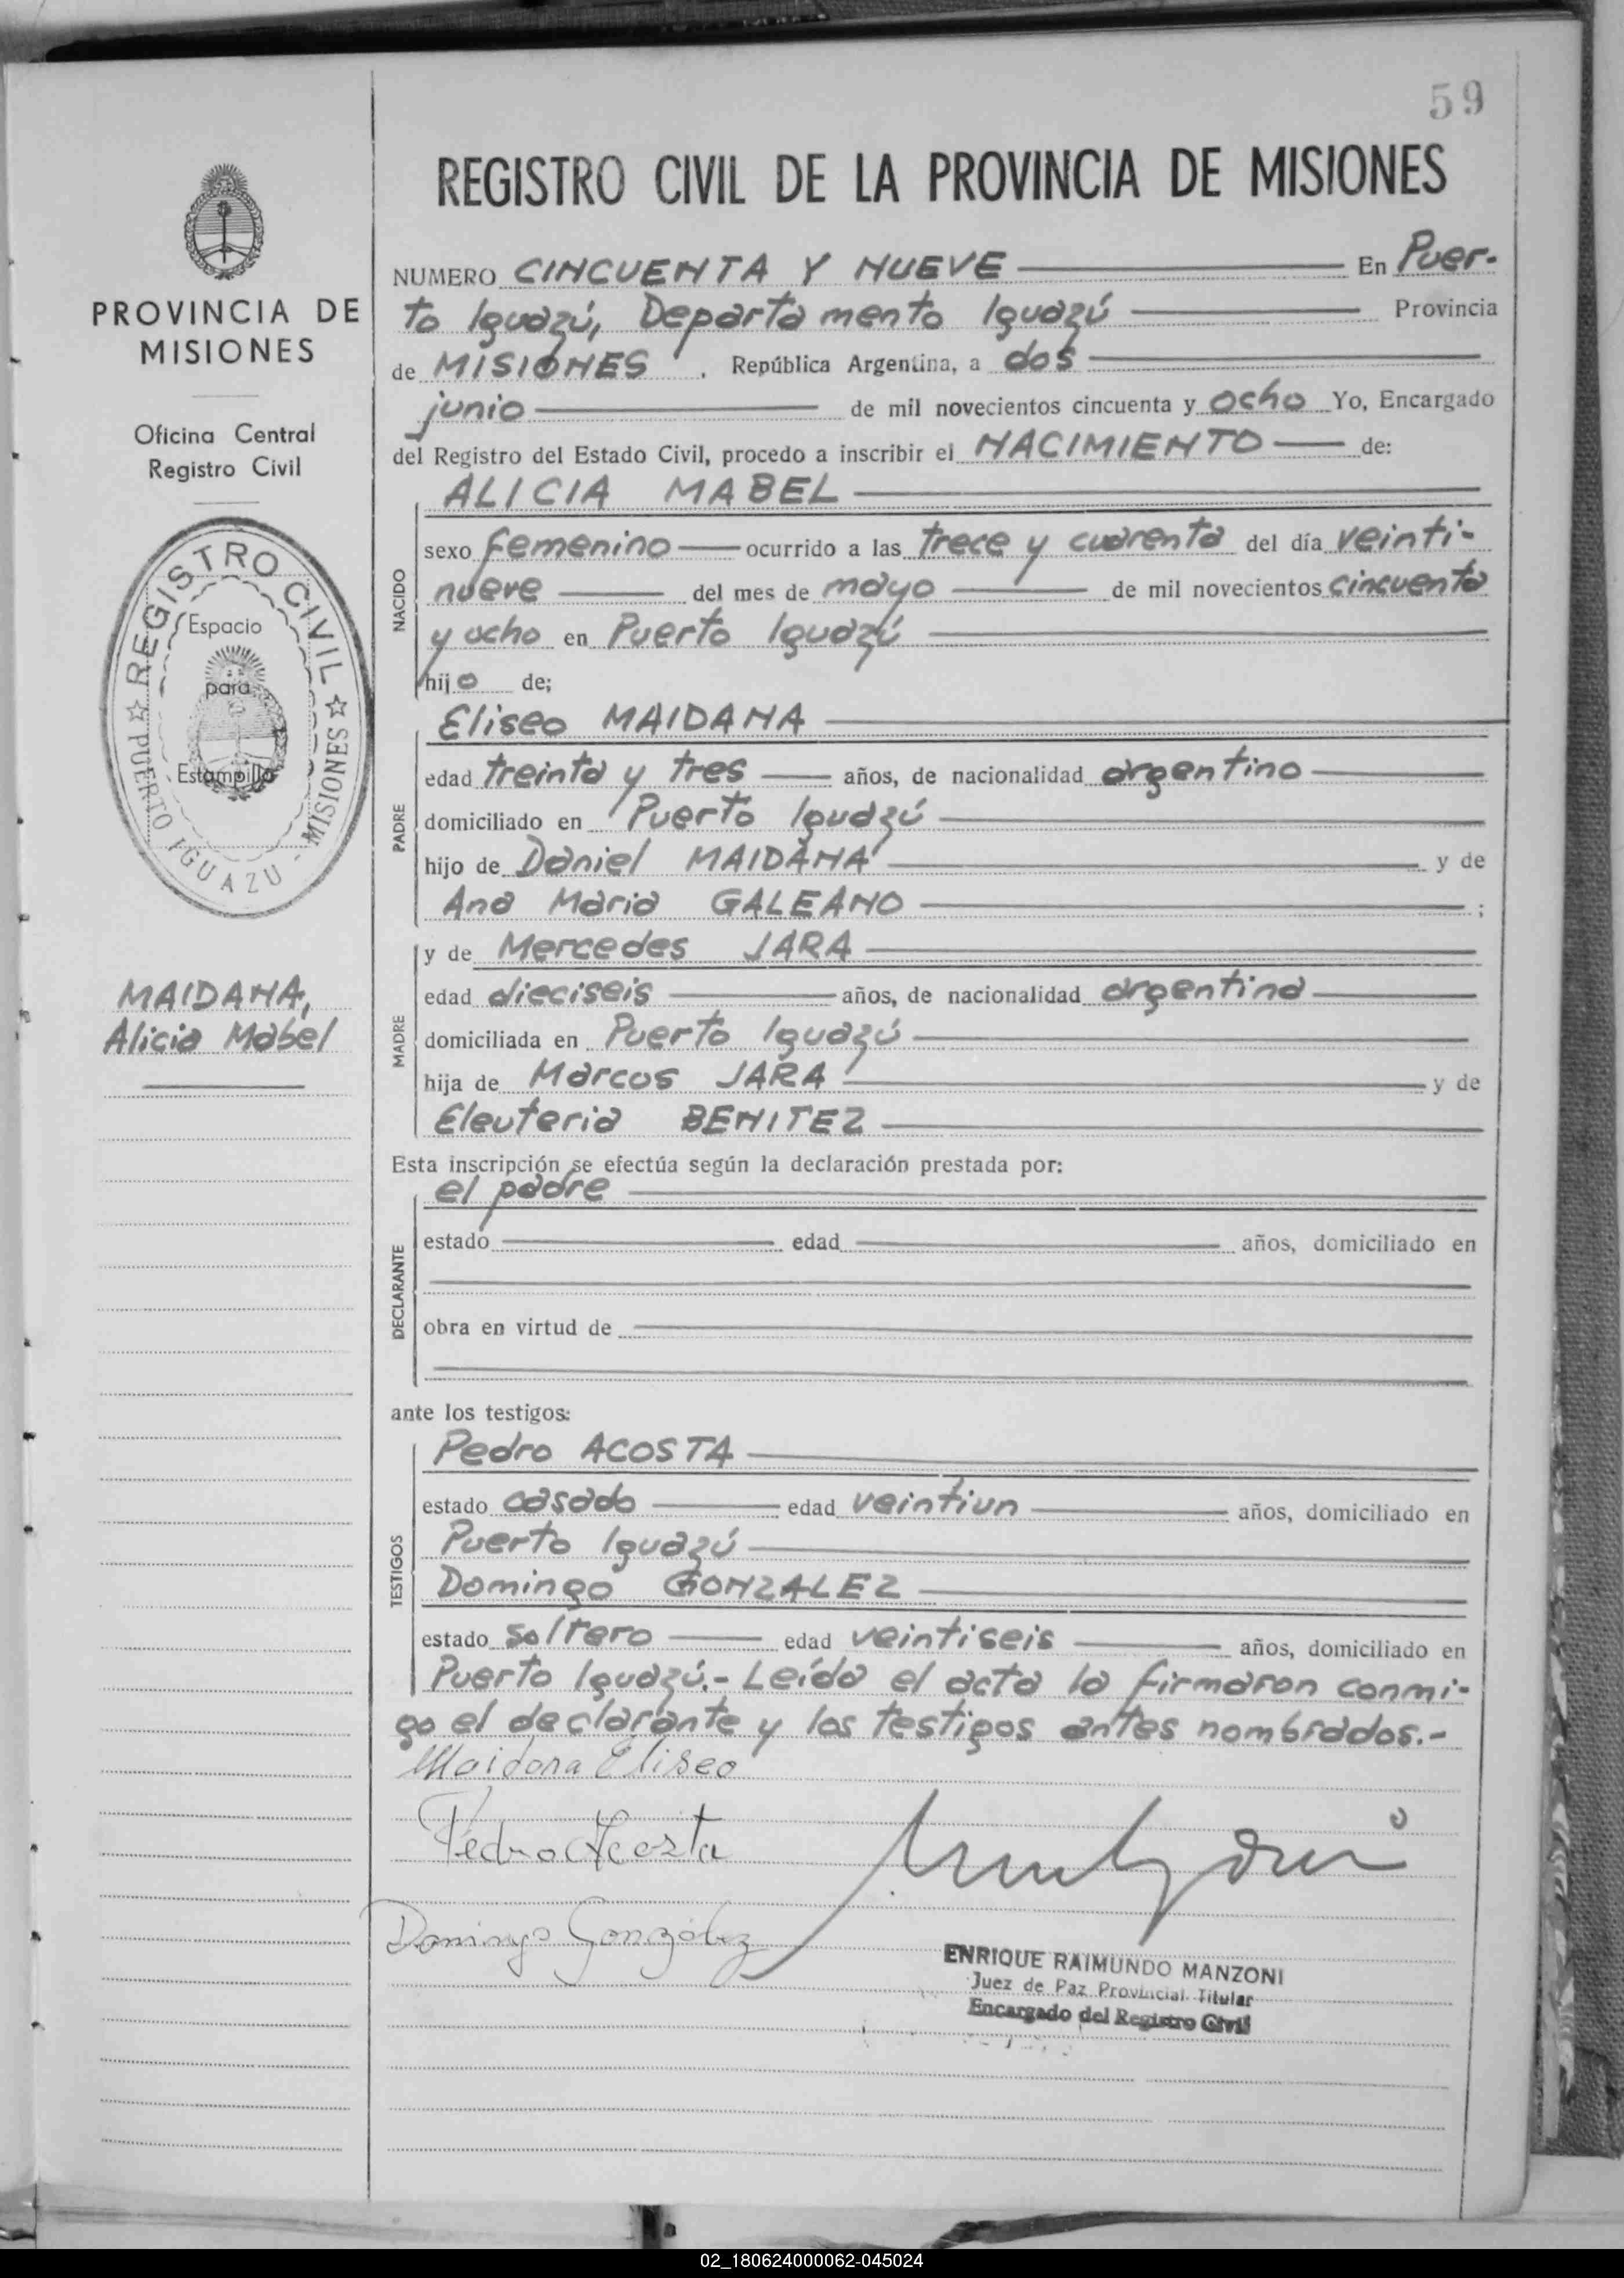 59
REGISTRO CIVIL DE LA PROVINCIA DE MISIONES
PROVINCIA DE
MISIONES
Oficina Central
Registro Civil
REGISTRO CIVIL
PUERTO IGUAZU - MISIONES
Espacio
para
Estampilla
MAIDANA,
Alicia Mabel
NUMERO CINCUENTA Y NUEVE En Puer-
to Iguazú, Departamento Iguazú Provincia
de MISIONES, República Argentina, a dos
junio de mil novecientos cincuenta y ocho Yo, Encargado
del Registro del Estado Civil, procedo a inscribir el NACIMIENTO de:
NACIDO
ALICIA MABEL
sexo femenino ocurrido a las trece y cuarenta del día veinti-
nueve del mes de mayo de mil novecientos cincuenta
y ocho en Puerto Iguazú
hijo de;
PADRE
Eliseo MAIDANA
edad treinta y tres años, de nacionalidad argentino
domiciliado en Puerto Iguazú
hijo de Daniel MAIDANA y de
Ana Maria GALEANO ;
MADRE
y de Mercedes JARA
edad dieciseis años, de nacionalidad argentina
domiciliada en Puerto Iguazú
hija de Marcos JARA y de
Eleuteria BENITEZ
Esta inscripción se efectúa según la declaración prestada por:
DECLARANTE
el padre
estado edad años, domiciliado en
obra en virtud de
ante los testigos:
TESTIGOS
Pedro ACOSTA
estado casado edad veintiun años, domiciliado en
Puerto Iguazú
Domingo GONZALEZ
estado soltero edad veintiseis años, domiciliado en
Puerto Iguazú.- Leída el acta la firmaron conmi-
go el declarante y los testigos antes nombrados.-
Maidana Eliseo
Pedro Acosta
Domingo González
ENRIQUE RAIMUNDO MANZONI
Juez de Paz Provincial Titular
Encargado del Registro Civil
02_180624000062-045024